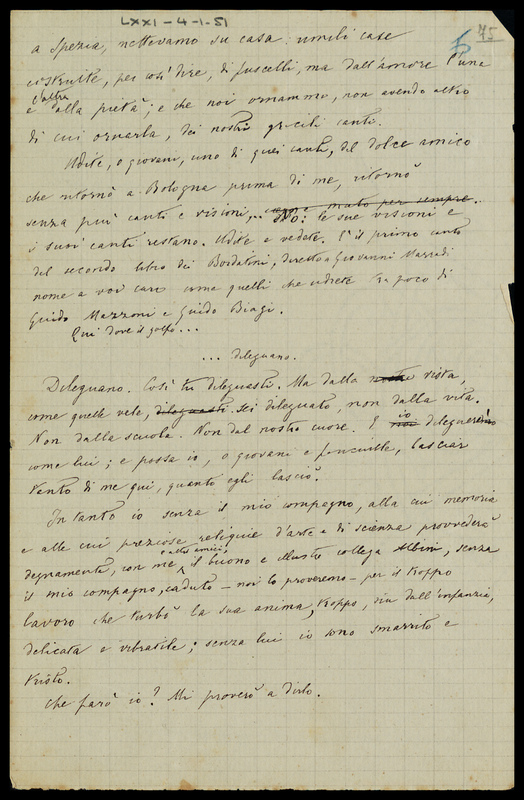 LXXI-4-1-51
75
a Spezia, mettevamo su casa: umili case
costruite, per così dire, di fuscelli, ma dall'amore l'una
l'altra
e dalla pietà; e che noi ornammo, non avendo altro
di cui ornarla, dei nostri gracili canti.
Udite, o giovani, uno di quei canti, del dolce amico
che ritornò a Bologna prima di me, ritornò
senza più canti e visioni,... e muto per sempre.
No: le sue visioni e
i suoi canti restano. Udite e vedete. È il primo canto
del secondo libro dei Bordatini, diretto a Giovanni Marradi
nome a voi caro come quelli che udrete tra poco di
Guido Mazzoni e Guido Biagi.
Qui dove il golfo...
... dileguano.
Dileguano. Così tu dileguasti. Ma dalla nostra vista,
come quelle vele, dileguasti sei dileguato, non dalla vita.
Non dalla scuola. Non dal nostro cuore. E noi io dileguerò
come lui; e possa io, o giovani e fanciulle, lasciar
tanto di me qui, quanto egli lasciò.
Intanto io senza il mio compagno, alla cui memoria
e alle cui preziose reliquie d'arte e di scienza provvederà
e altri amici,
degnamente, con me, il buono e illustre collega Albini, senza
il mio compagno, caduto - noi lo proveremo - per il troppo
lavoro che turbò la sua anima, troppo, sin dall'infanzia,
delicata e vibratile; senza lui io sono smarrito e
tristo.
Che farò io? Mi proverò a dirlo.